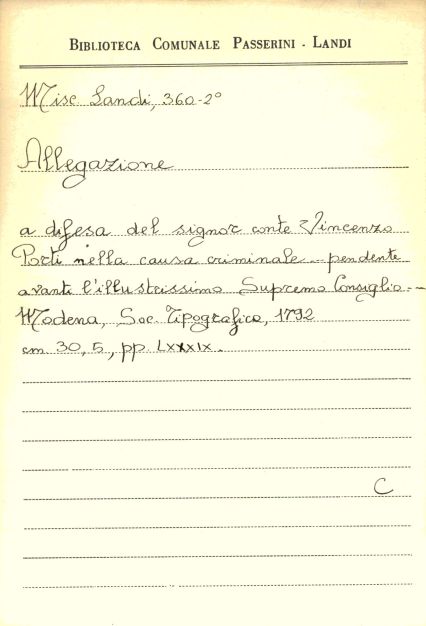 BIBLIOTECA COMUNALE PASSERINI - LANDI
Misc Landi, 360-2°
Allegazione
a difesa del signor conte Vincenzo
Porti nella causa criminale -- pendente
avanti l'illustrissimo Supremo Consiglio --
Modena, Soc Tipografica, 1792
cm 30,5, pp. LXXXIX.
C